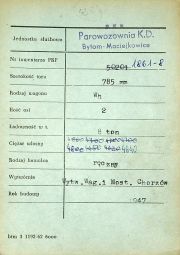 Jednostka służbowa
Parowozownia K.D.
Bytom-Maciejkowice
Nr inwentarza PKP
50201 1861-8
Szerokość toru
785 mm
Rodzaj wagonu
Wh
Ilość osi
2
Ładowność w t.
8 ton
Ciężar własny
4800 4650 4640 4642
Rodzaj hamulca
ręczny
Wytwórnia
Wytw.Wag.i Most. Chorzów
Rok budowy
1947